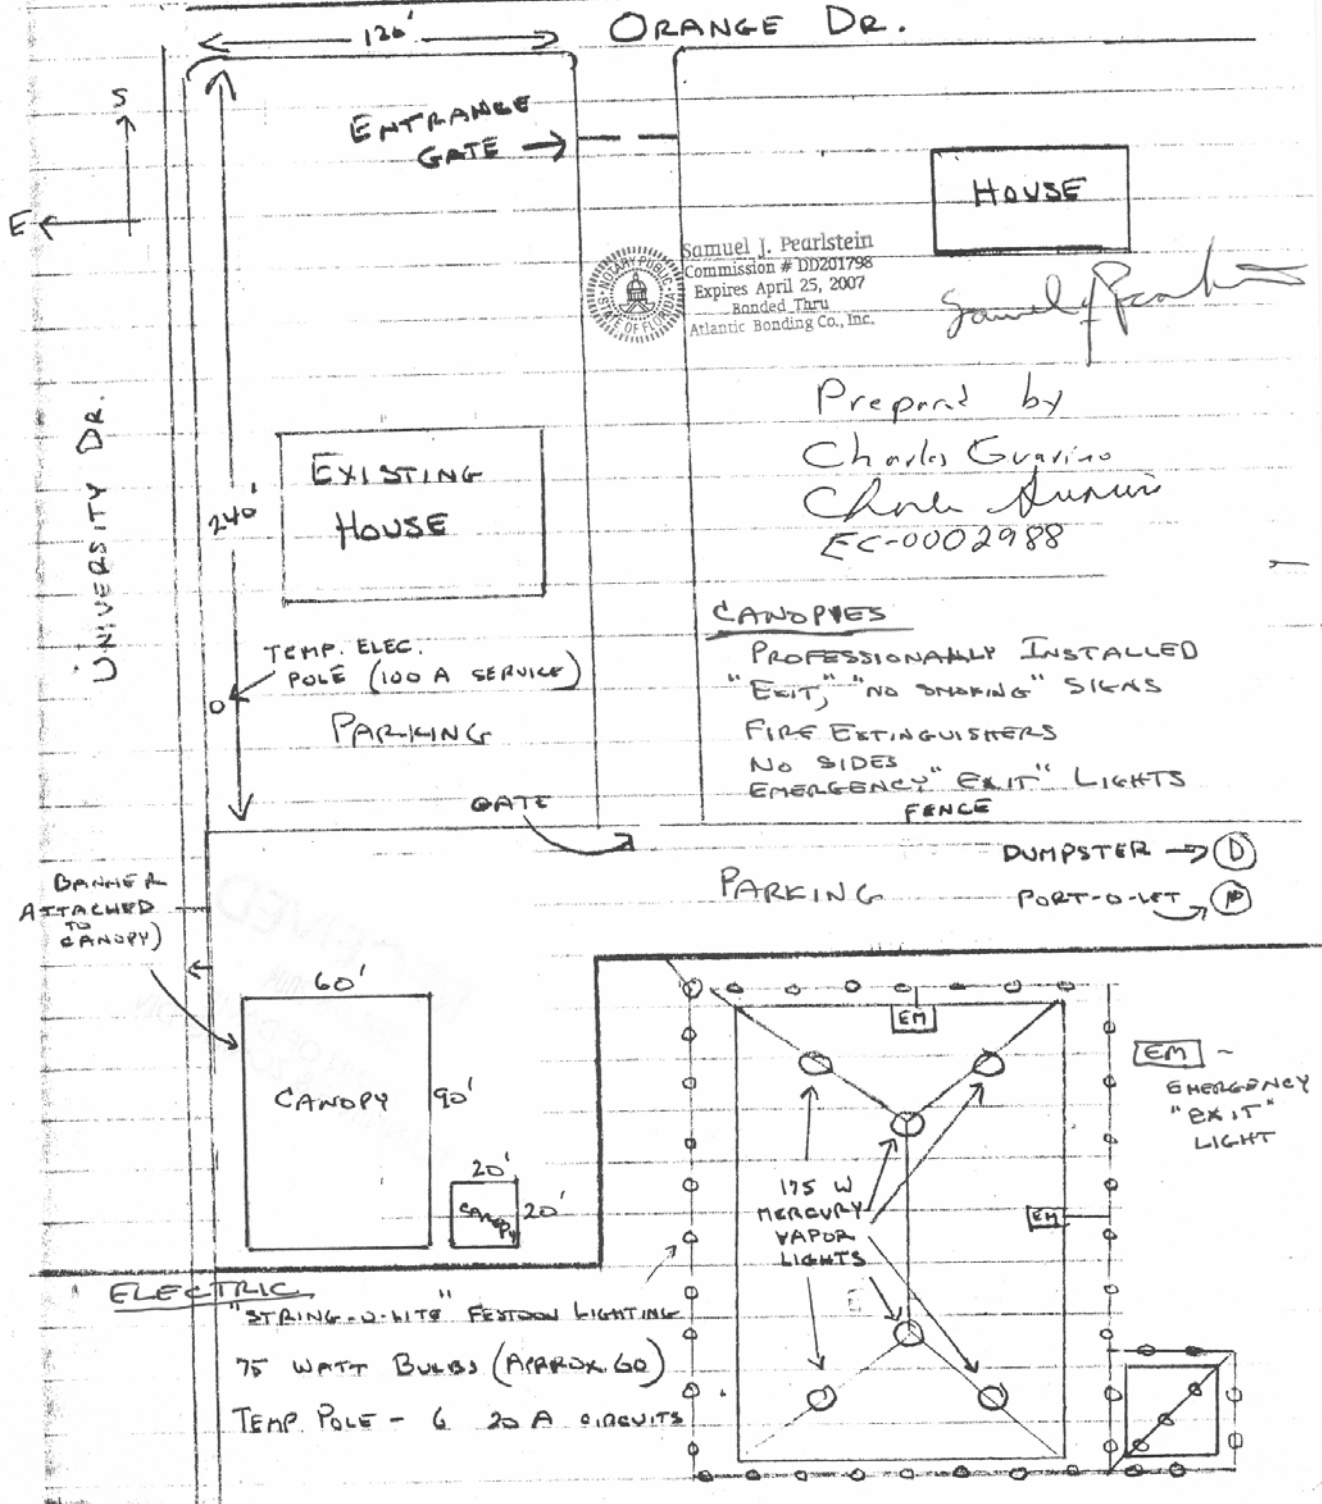 126'
ORANGE DR.
S
E
ENTRANCE
GATE
HOUSE
NOTARY PUBLIC
STATE OF FLORIDA
Samuel J. Pearlstein
Commission # DD201798
Expires April 25, 2007
Bonded Thru
Atlantic Bonding Co., Inc.
Prepared by
Charles Guarino
EC-0002988
UNIVERSITY DR.
240'
EXISTING
HOUSE
TEMP. ELEC.
POLE (100 A SERVICE)
PARKING
CANOPIES
PROFESSIONALLY INSTALLED
"EXIT," "NO SMOKING" SIGNS
FIRE EXTINGUISHERS
NO SIDES
EMERGENCY "EXIT" LIGHTS
FENCE
GATE
DUMPSTER D
PARKING
PORT-O-LET P
BANNER
ATTACHED
TO
CANOPY)
60'
CANOPY
90'
20'
CANOPY
20'
EM
EM
EM -
EMERGENCY
"EXIT"
LIGHT
175 W
MERCURY
VAPOR
LIGHTS
ELECTRIC
"STRING-O-LITE" FESTOON LIGHTING
75 WATT BULBS (APPROX 60)
TEMP. POLE - 6 20 A CIRCUITS